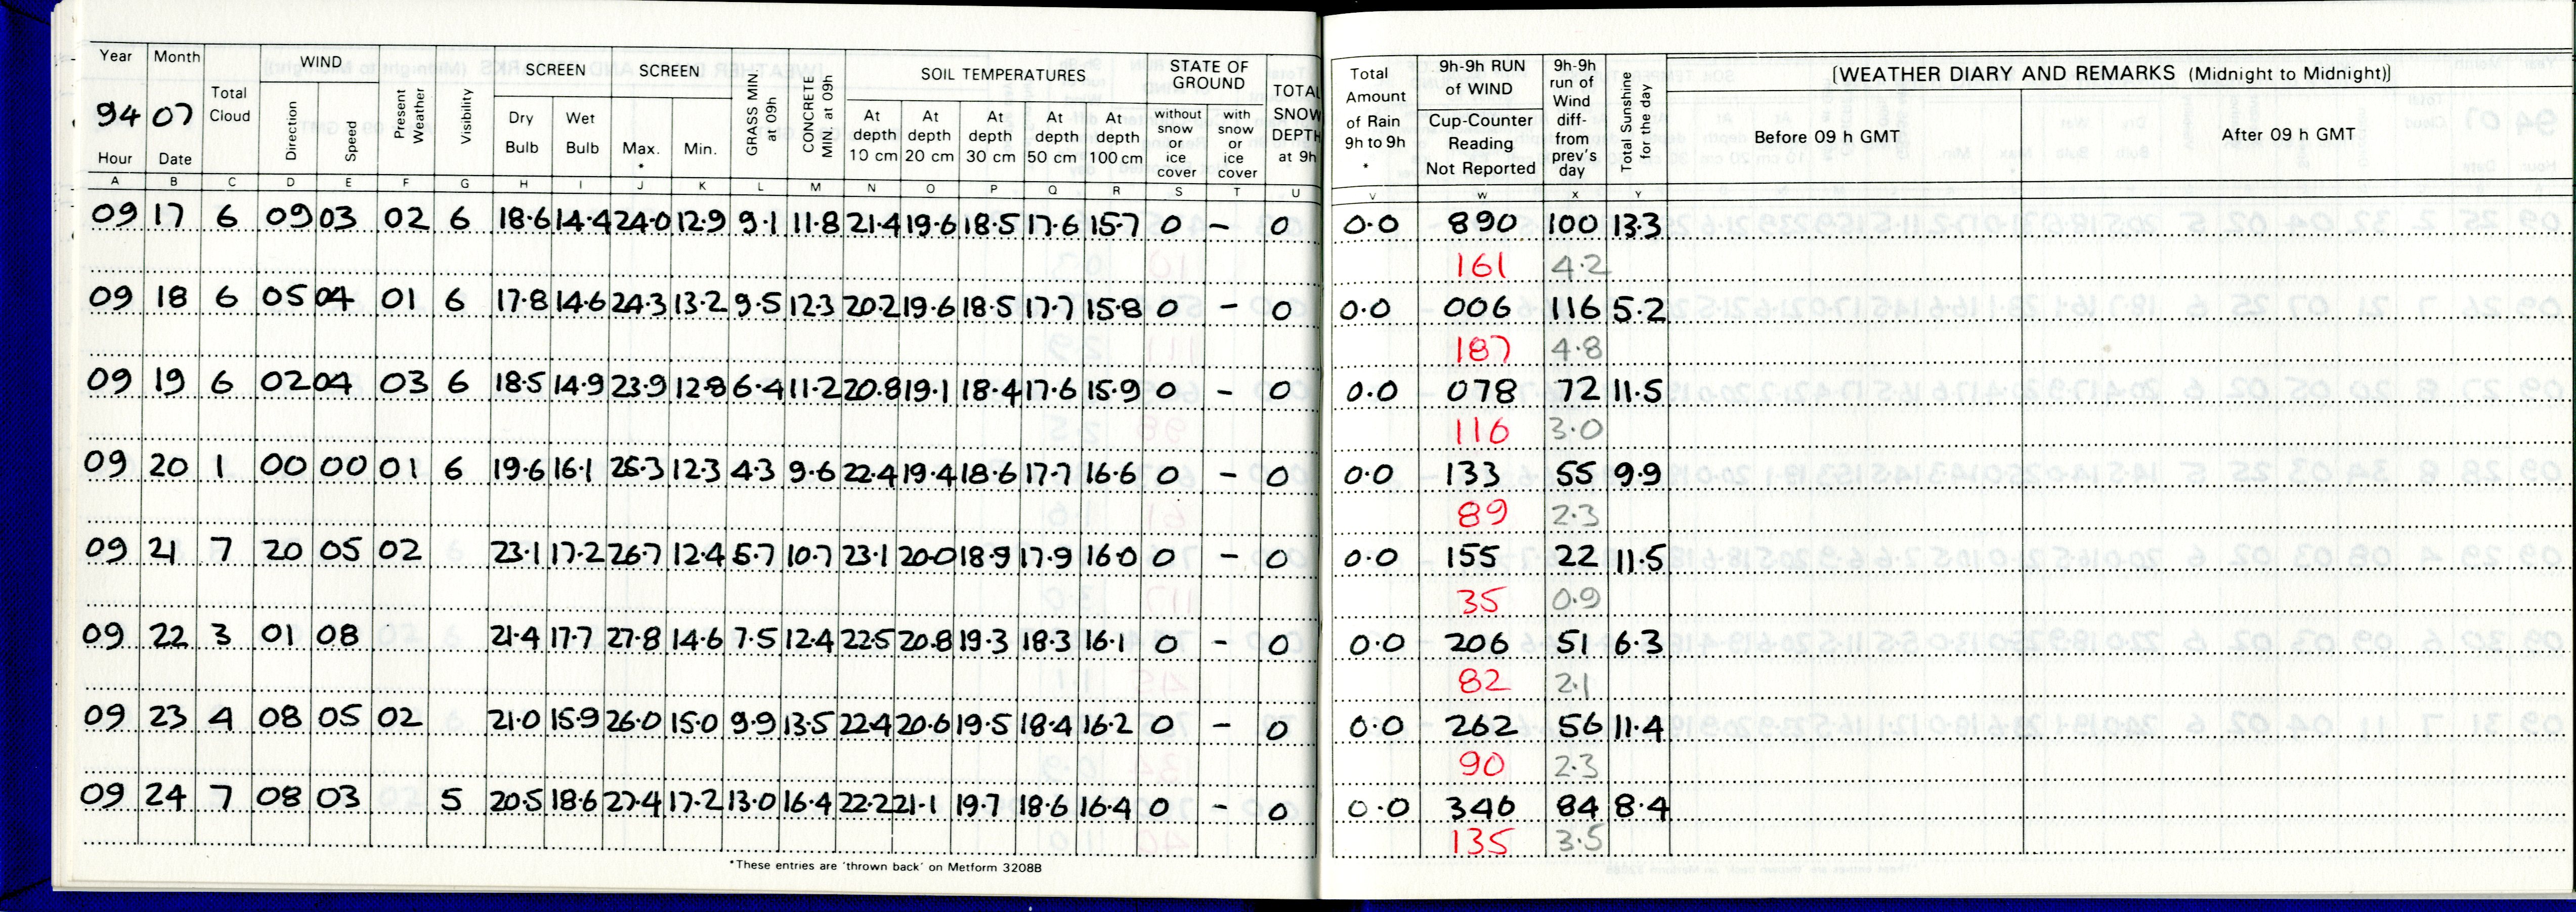 Year Month Total Cloud WIND Present Weather Visibility SCREEN SCREEN GRASS MIN at 09h CONCRETE MIN at 09h SOIL TEMPERATURES STATE OF GROUND TOTAL SNOW DEPTH at 9h Total Amount of Rain 9h to 9h * 9h-9h RUN of WIND 9h-9h run of Wind diff- from prev's day Total Sunshine for the day [WEATHER DIARY AND REMARKS (Midnight to Midnight)]
94 07 Direction Speed Dry Bulb Wet Bulb Max. * Min. At depth 10 cm At depth 20 cm At depth 30 cm At depth 50 cm At depth 100 cm without snow or ice cover with snow or ice cover Cup-Counter Reading Not Reported Before 09 h GMT After 09 h GMT
Hour Date
A B C D E F G H I J K L M N O P Q R S T U V W X Y
09 17 6 09 03 02 6 18.6 14.4 24.0 12.9 9.1 11.8 21.4 19.6 18.5 17.6 15.7 0 – 0 0.0 890 100 13.3
161 4.2
09 18 6 05 04 01 6 17.8 14.6 24.3 13.2 9.5 12.3 20.2 19.6 18.5 17.7 15.8 0 – 0 0.0 006 116 5.2
187 4.8
09 19 6 02 04 03 6 18.5 14.9 23.9 12.8 6.4 11.2 20.8 19.1 18.4 17.6 15.9 0 – 0 0.0 078 72 11.5
116 3.0
09 20 1 00 00 01 6 19.6 16.1 25.3 12.3 4.3 9.6 22.4 19.4 18.6 17.7 16.6 0 – 0 0.0 133 55 9.9
89 2.3
09 21 7 20 05 02 23.1 17.2 26.7 12.4 5.7 10.7 23.1 20.0 18.9 17.9 16.0 0 – 0 0.0 155 22 11.5
35 0.9
09 22 3 01 08 21.4 17.7 27.8 14.6 7.5 12.4 22.5 20.8 19.3 18.3 16.1 0 – 0 0.0 206 51 6.3
82 2.1
09 23 4 08 05 02 21.0 15.9 26.0 15.0 9.9 13.5 22.4 20.6 19.5 18.4 16.2 0 – 0 0.0 262 56 11.4
90 2.3
09 24 7 08 03 5 20.5 18.6 27.4 17.2 13.0 16.4 22.2 21.1 19.7 18.6 16.4 0 – 0 0.0 346 84 8.4
135 3.5
*These entries are 'thrown back' on Metform 3208B